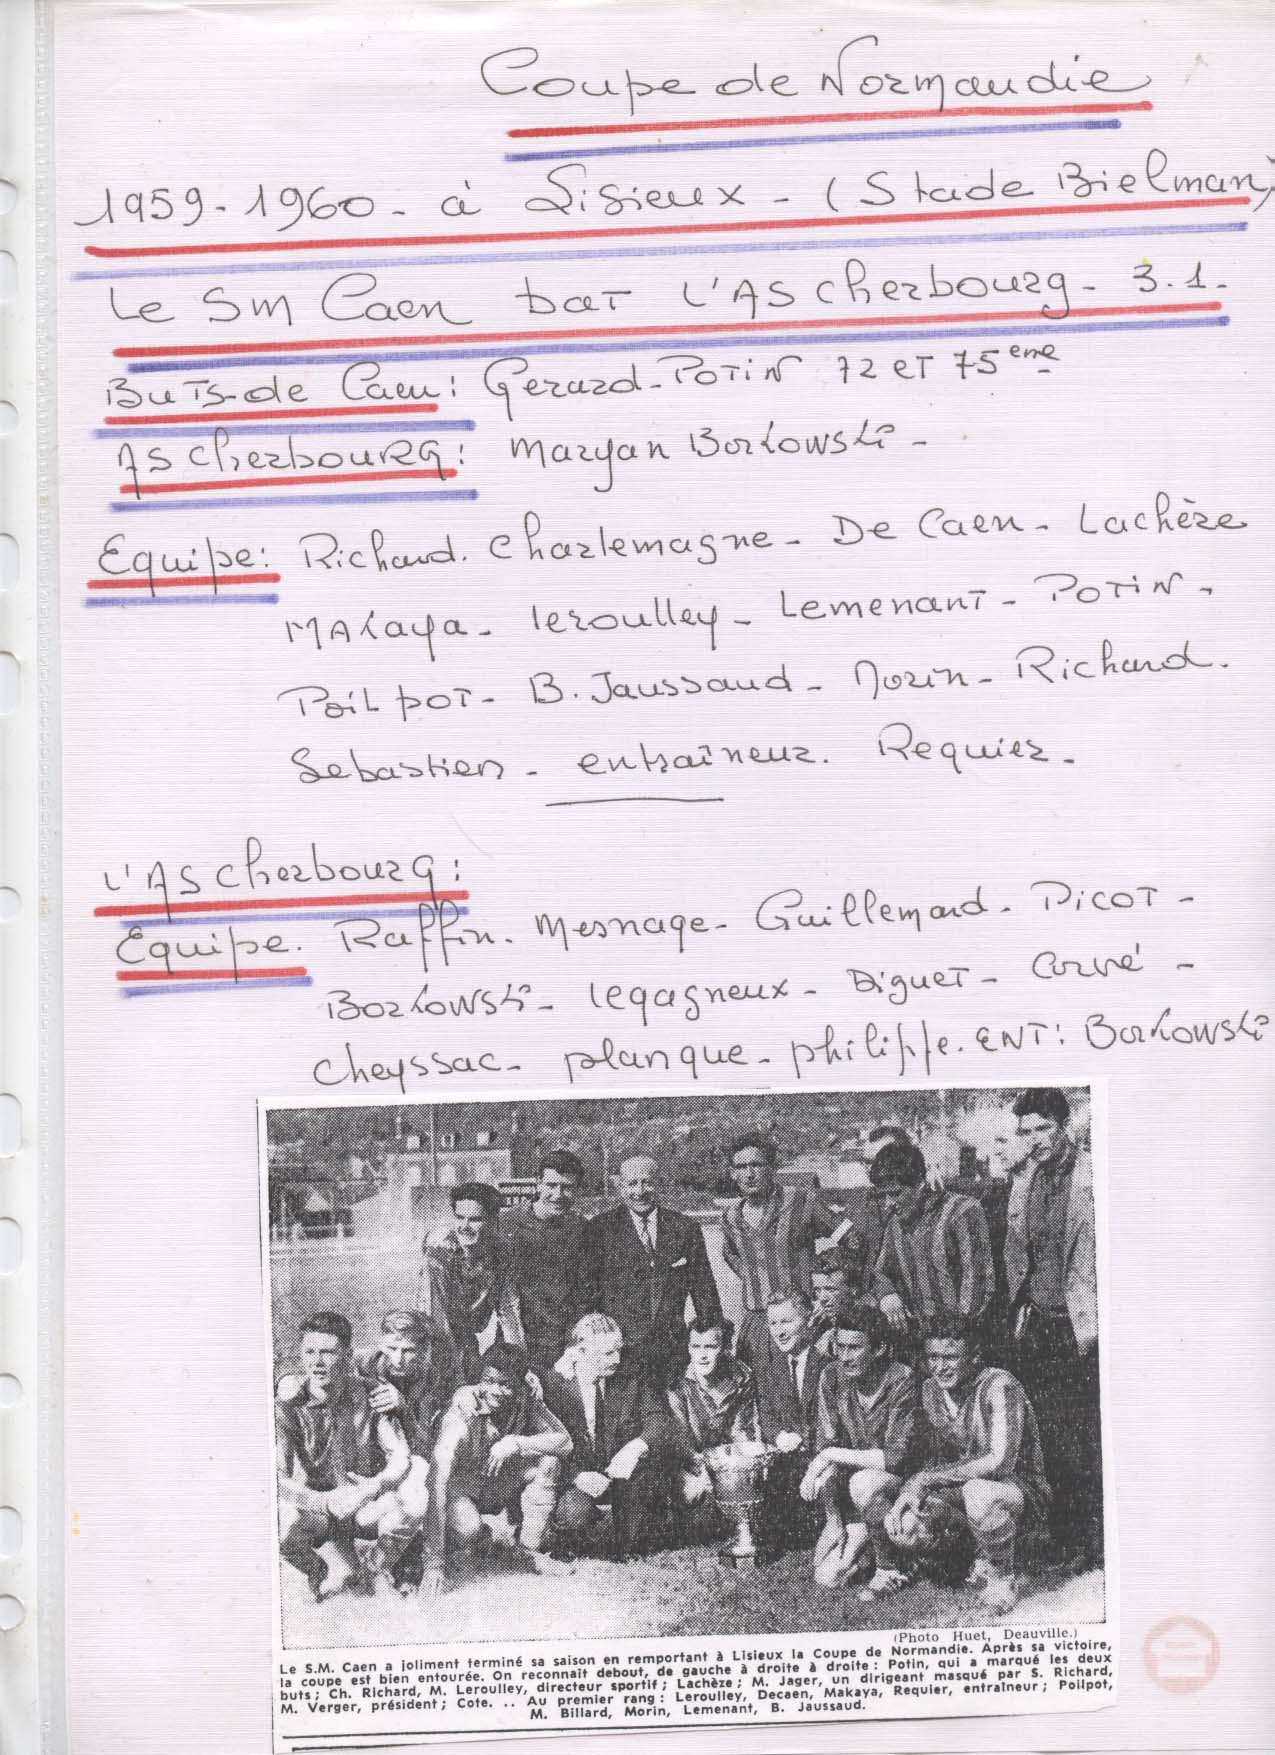 Coupe de Normandie
1959-1960- à Lisieux - (Stade Bielman)
Le SM Caen bat L'AS Cherbourg - 3.1.
Buts de Caen: Gerard-Potin 72 et 75 eme
AS Cherbourg: Maryan Borkowski -
Equipe: Richard. Charlemagne - De Caen - Lachère
Makaya - leroulley - Lemenant - Potin -
Poilpot - B. Jaussaud - Morin - Richard.
Sebastien - entraîneur. Requier -
L'AS Cherbourg:
Equipe. Raffin. Mesnage - Guillemard - Picot -
Borkowski - legagneux - Diguet - Corvé -
Cheyssac - planque - philippe. ENT: Borkowski
(Photo Huet, Deauville.)
Le S.M. Caen a joliment terminé sa saison en remportant à Lisieux la Coupe de Normandie. Après sa victoire,
la coupe est bien entourée. On reconnaît debout, de gauche à droite à droite : Potin, qui a marqué les deux
buts ; Ch. Richard, M. Leroulley, directeur sportif ; Lachèze ; M. Jager, un dirigeant masqué par S. Richard,
M. Verger, président ; Cote. .. Au premier rang : Leroulley, Decaen, Makaya, Requier, entraîneur ; Poilpot,
M. Billard, Morin, Lemenant, B. Jaussaud.